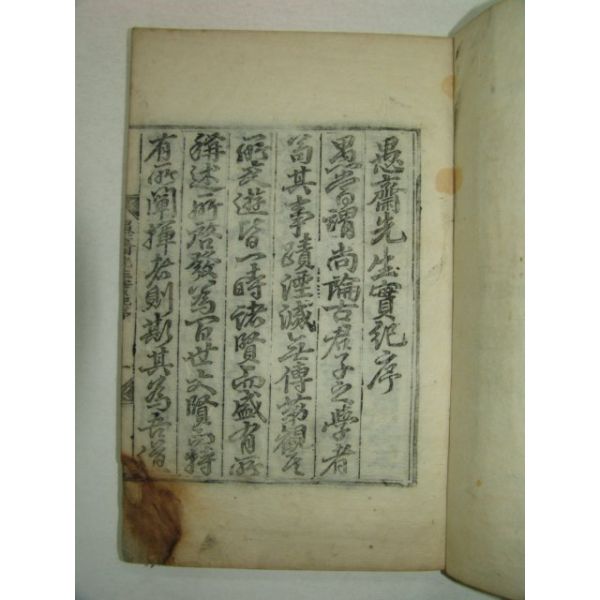 愚齋先生實紀序
愚嘗謂尚論古君子之學者
苟其事蹟湮滅無傳苐觀其
所交遊皆一時諸賢而盛有所
稱述所啓發為百世大賢而特
有所闡揮者則斯其為吾儒